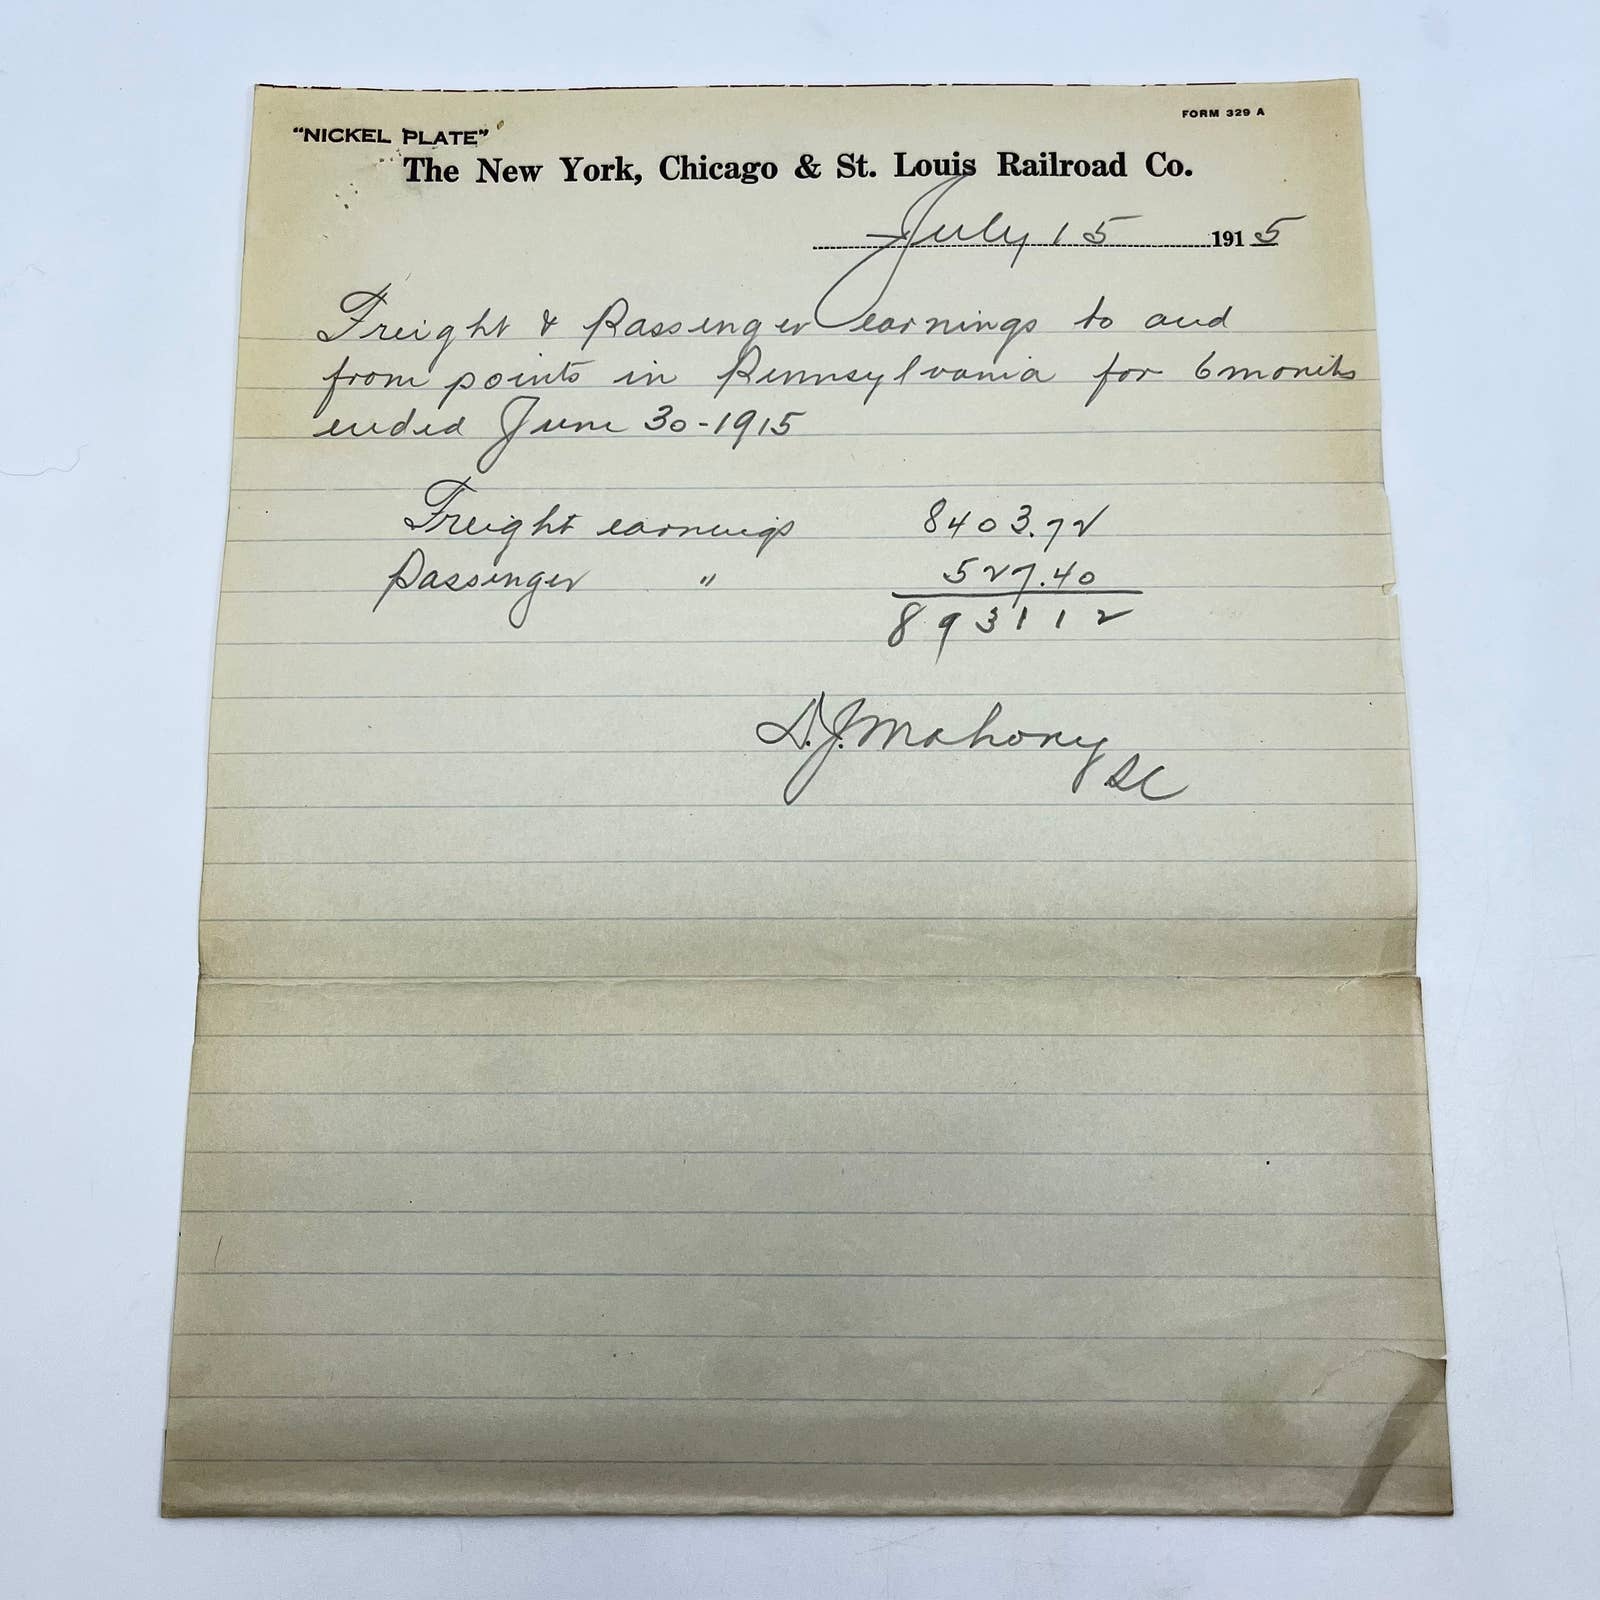 FORM 329 A
"NICKEL PLATE"
The New York, Chicago & St. Louis Railroad Co.
July 15 1915
Freight & Passenger earnings to and
from points in Pennsylvania for 6 months
ended June 30-1915
Freight earnings 8403.72
Passenger " 527.40
893112
D.J. Mahony